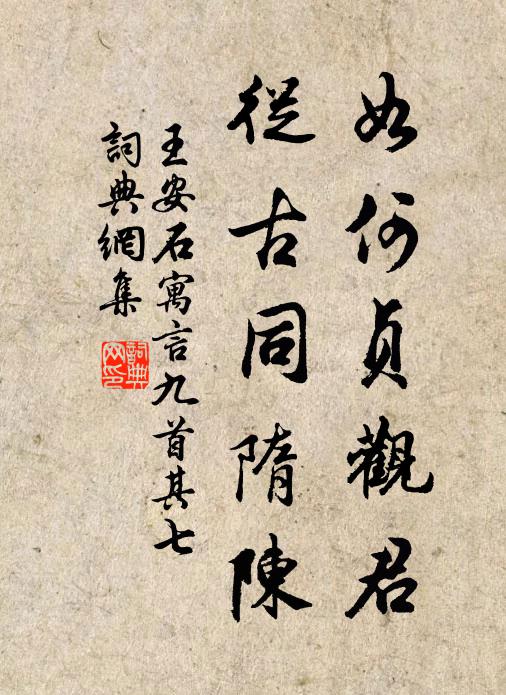 如何貞觀君
從古同隋陳
王安石寓言九首其七
詞典網集
詞典
网印